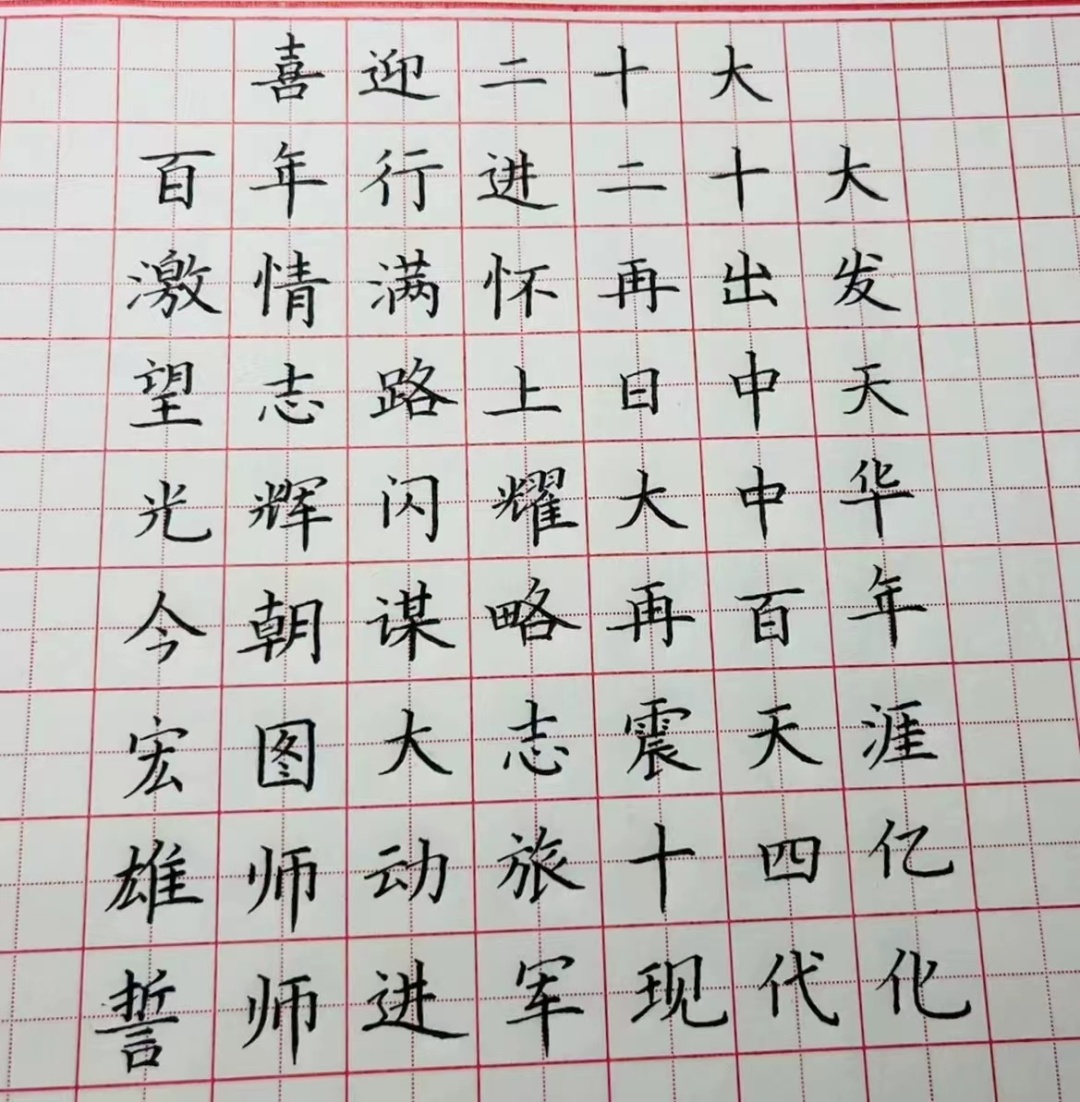 喜迎二十大
百年行进二十大
激情满怀再出发
望志路上日中天
光辉闪耀大中华
今朝谋略再百年
宏图大志震天涯
雄师动旅十四亿
誓师进军现代化